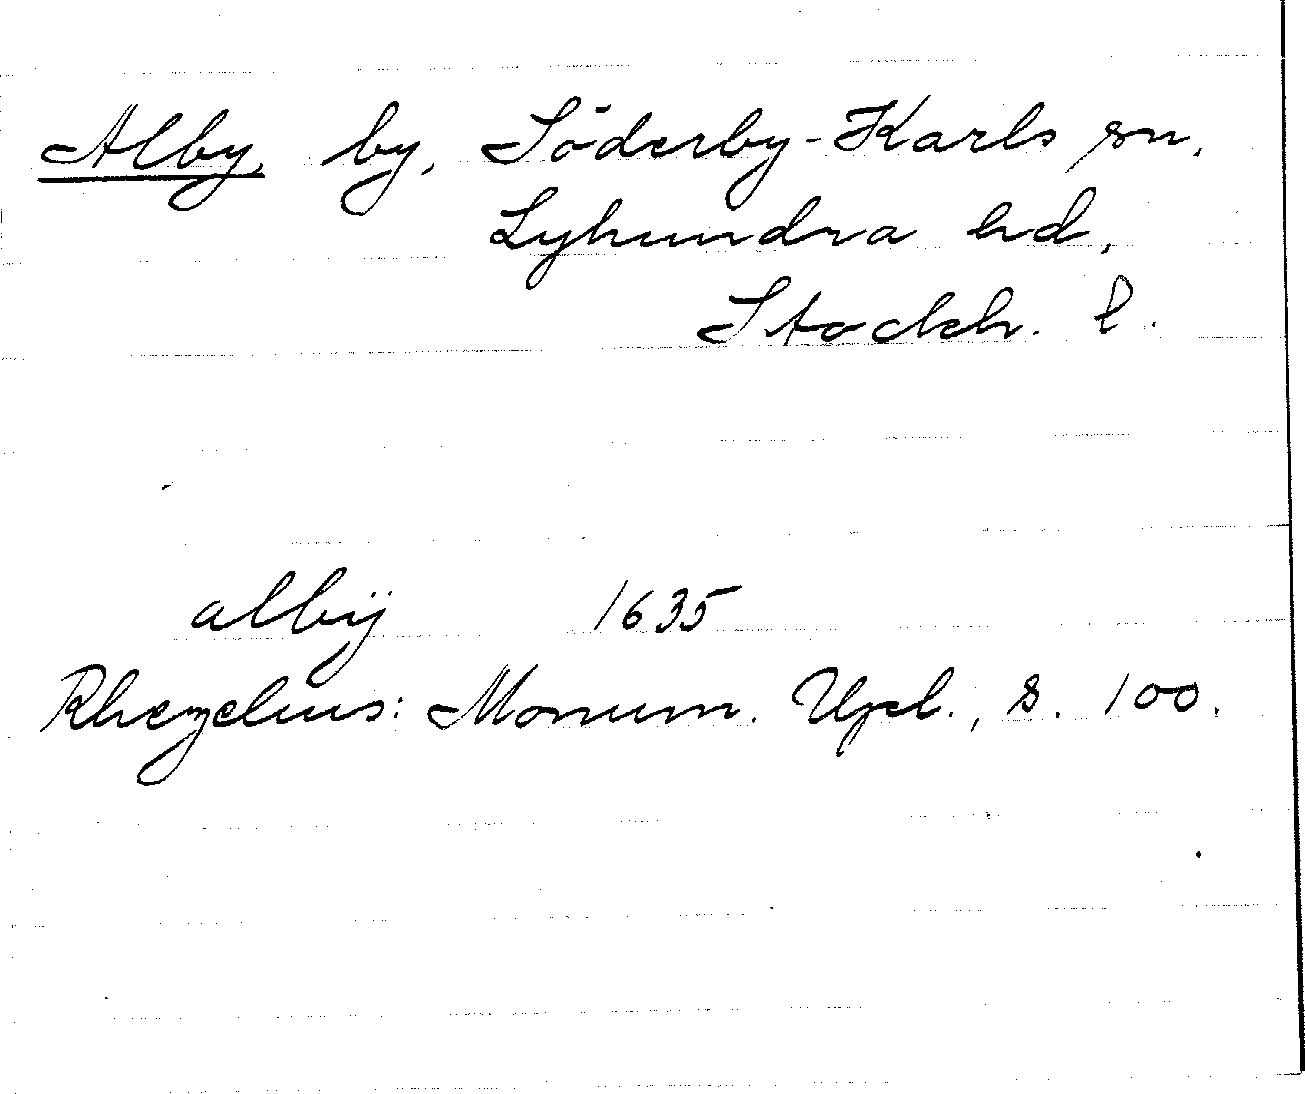 Alby, by, Söderby-Karls sn,
Lyhundra hd,
Stockh. l.
albÿ 1635
Rhezelius: Monum. Upl., s. 100.